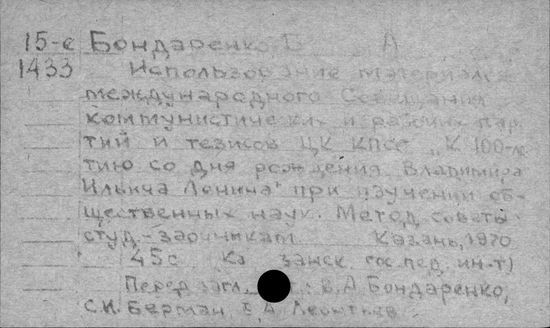 15-е Бондаренко В А
1433 Использование материалов
международного Совещания
коммунистических и рабочих пар-
тий и тезисов ЦК КПСС „К 100-ле-
тию со дня рождения Владимира
Ильича Ленина" при изучении об-
щественных наук. Метод. советы
студ.-заочникам Казань, 1970
45с Казанск. гос. пед. ин-т)
Перед загл. : В.А. Бондаренко,
С.И. Берман, А. Леонтьев